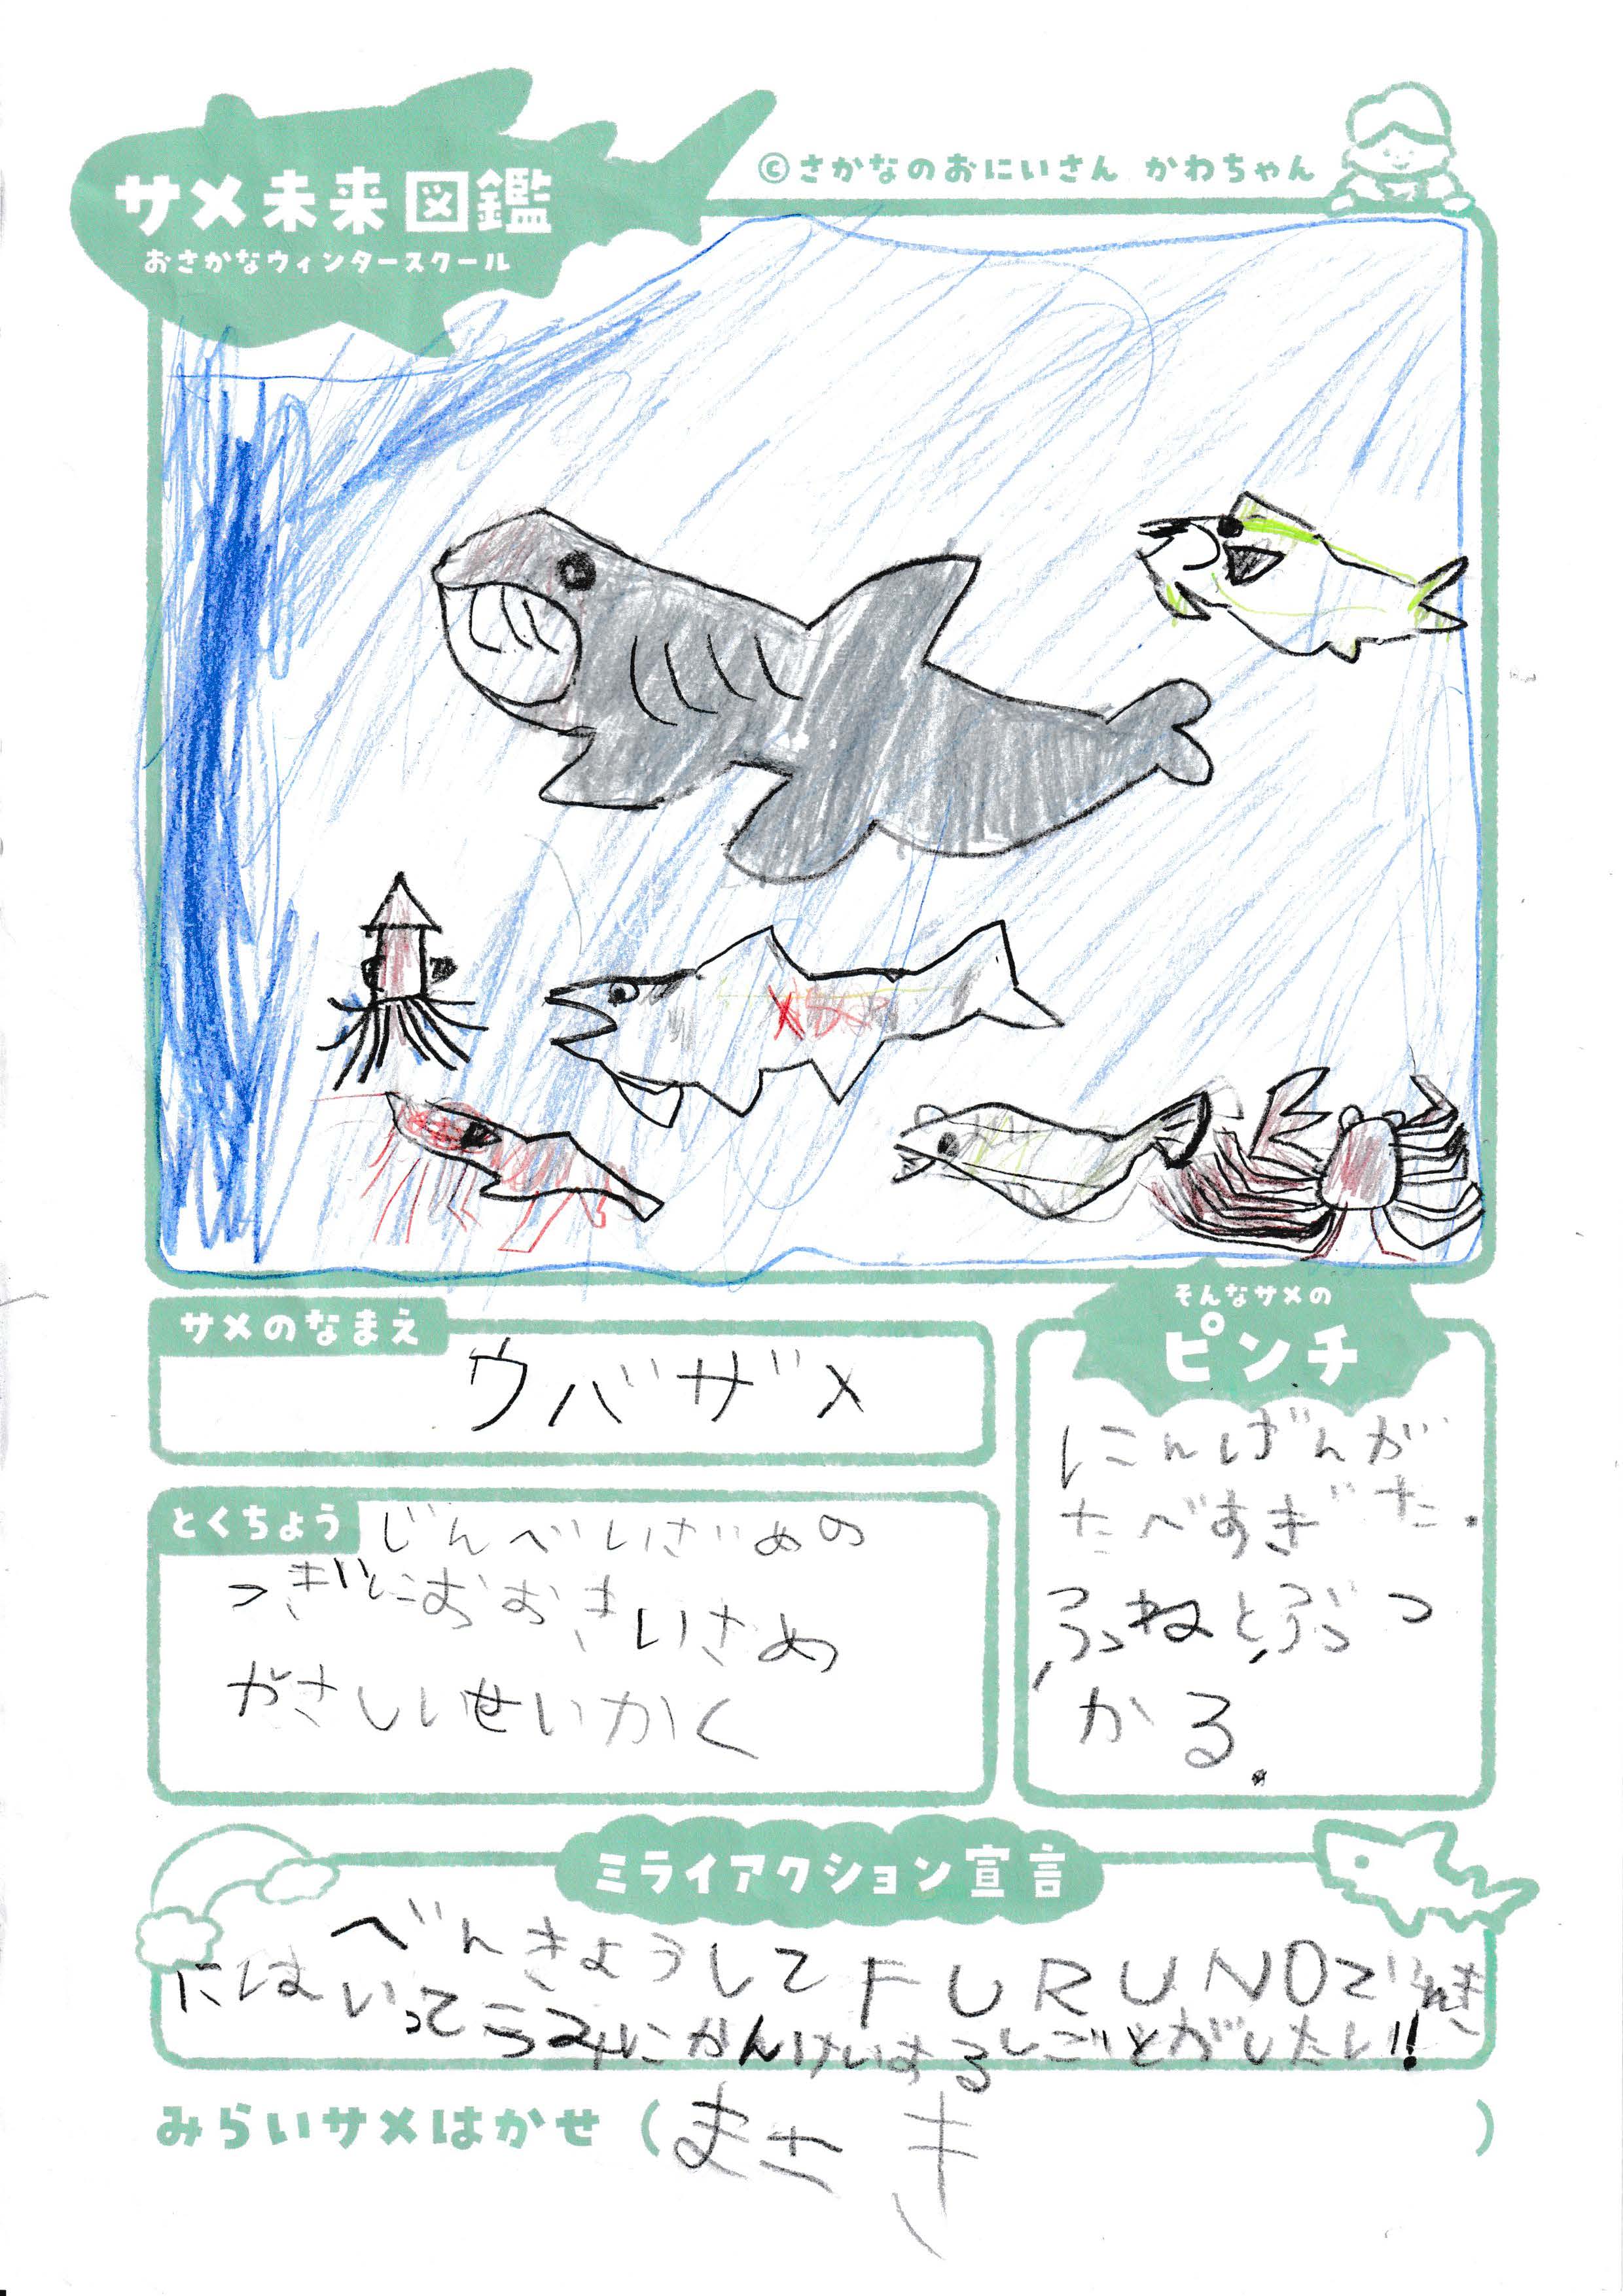 ©さかなのおにいさん かわちゃん
サメ未来図鑑
おさかなウィンタースクール
サメのなまえ
ウバザメ
とくちょう
じんべいざめの
つぎにおおきいさめ
やさしいせいかく
そんなサメの
ピンチ
にんげんが
たべすぎた.
ふねとぶつ
かる.
ミライアクション宣言
べんきょうしてFURUNOで
にはいってうみにかんけいするしごとがしたい!!
みらいサメはかせ(まさき)